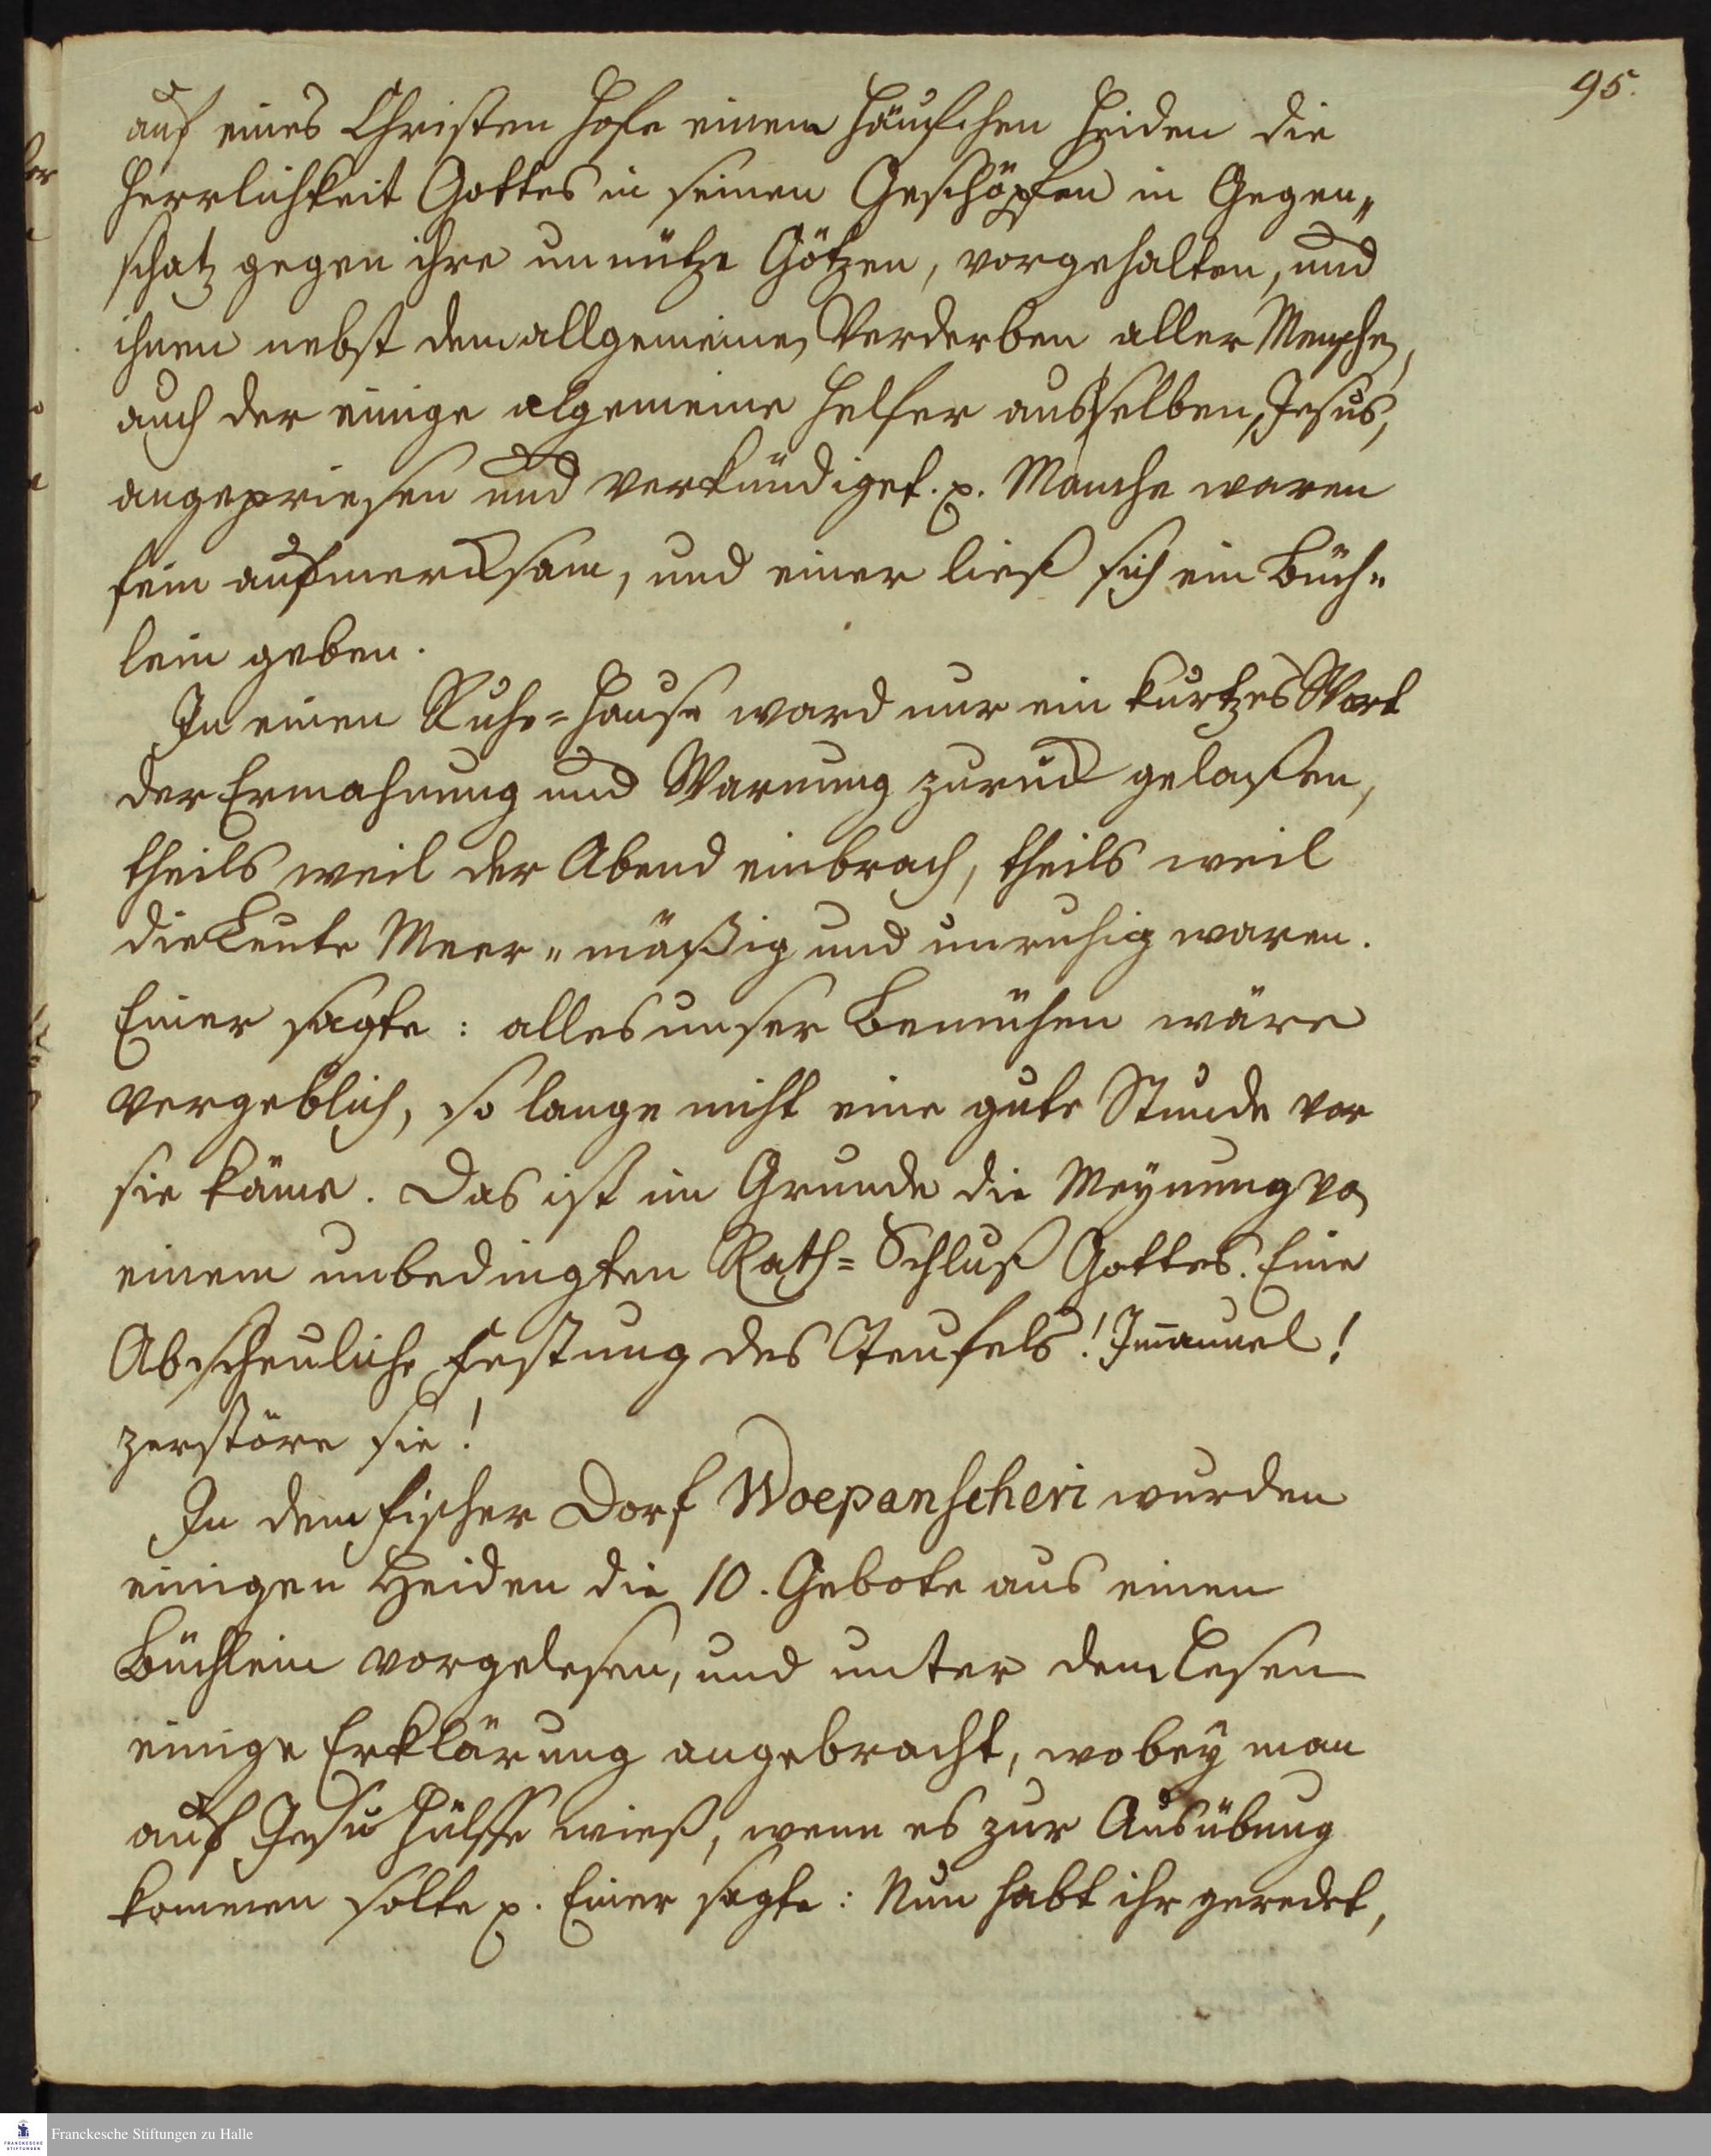 95.
auf eines Christen Hofe einem Häufchen Heiden die
Herrlichkeit Gottes in seinen Geschöpfen in Gegen„
schatz gegen ihre unnütze Götzen, vorgehalten, und
ihnen nebst dem allgemeinen Verderben aller Menschen,
auch der einige algemeine Helfer aus selben, Jesus,
angepriesen und verkündiget. p. Manche waren
fein aufmercksam, und einer ließ sich ein Büch„
lein geben.
In einen Ruhe-Hause ward nur ein kurtzes Wort
der Ermahnung und Warnung zurück gelaßen,
theils weil der Abend einbrach, theils weil
die Leute Meer„mäßig und unruhig waren.
Einer sagte: alles unser Bemühen wäre
vergeblich, so lange nicht eine gute Stunde vor
sie käme. Das ist im Grunde die Meynung von
einem unbedingten Rath-Schluß Gottes. Eine
Abscheuliche Festung des Teufels! Im̄anuel!
zerstöre sie!
In dem Fischer Dorf Woepanscheri wurden
einigen Heiden die 10. Gebote aus einen
Büchlein vorgelesen, und unter dem Lesen
einige Erklärung angebracht, wobey man
auf Jesu Hülffe wieß, wenn es zur Ausübung
kommen solte p. Einer sagte: Nun habt ihr geredet,
Franckesche Stiftungen zu Halle